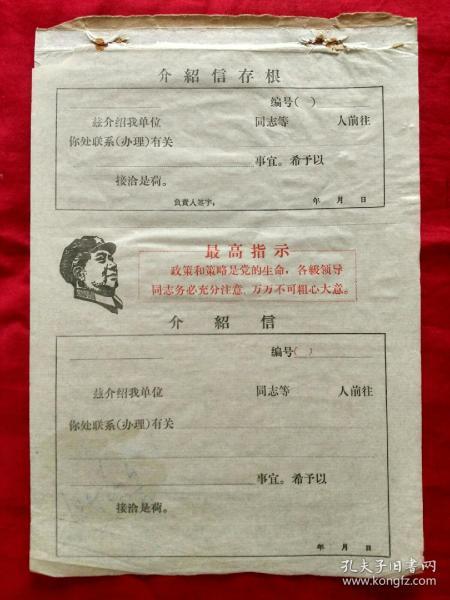 介紹信存根
编号( )
兹介绍我单位 同志等 人前往
你处联系(办理)有关
事宜。希予以
接洽是荷。
负責人签字：
年 月 日
最高指示
政策和策略是党的生命，各級领导
同志务必充分注意，万万不可粗心大意。
介紹信
编号( )
兹介绍我单位 同志等 人前往
你处联系(办理)有关
事宜。希予以
接洽是荷。
年 月 日
孔夫子旧书网
www.kongfz.com